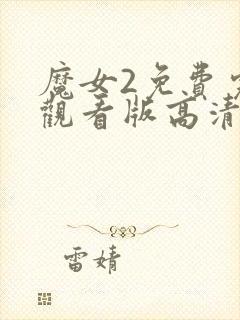 魔女2免费
觀看版高清
雷婧